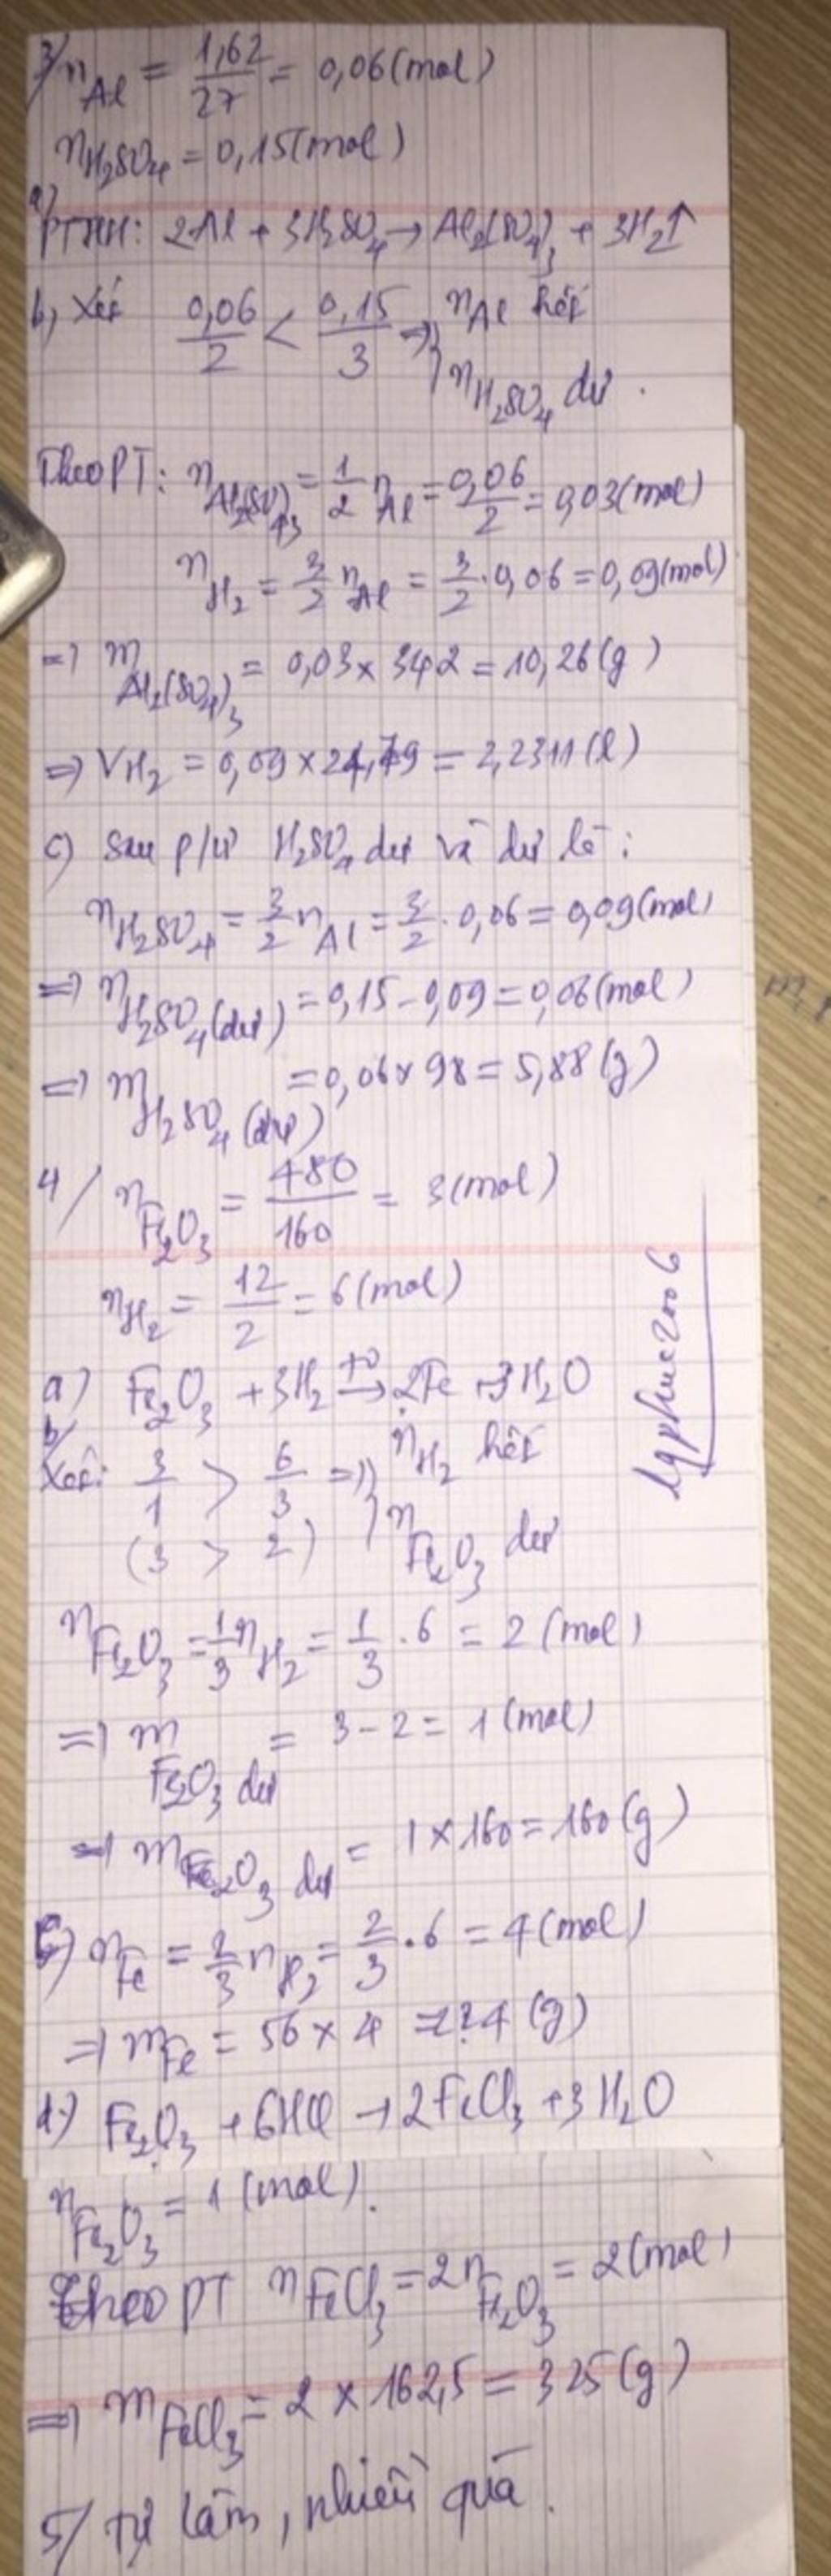 3/ nAl = 1,62/27 = 0,06 (mol)
nH2SO4 = 0,15 (mol)
a)
PTHH: 2Al + 3H2SO4 → Al2(SO4)3 + 3H2↑
b) Xét 0,06/2 < 0,15/3 => nAl hết
nH2SO4 dư.
Theo PT: nAl2(SO4)3 = 1/2 nAl = 0,06/2 = 0,03 (mol)
nH2 = 3/2 nAl = 3/2 . 0,06 = 0,09 (mol)
=> mAl2(SO4)3 = 0,03 x 342 = 10,26 (g)
=> VH2 = 0,09 x 24,79 = 2,2311 (l)
c) Sau p/ư H2SO4 dư và dư là:
nH2SO4 = 3/2 nAl = 3/2 . 0,06 = 0,09 (mol)
=> nH2SO4 (dư) = 0,15 - 0,09 = 0,06 (mol)
=> mH2SO4 (dư) = 0,06 x 98 = 5,88 (g)
4/ nFe2O3 = 480/160 = 3 (mol)
nH2 = 12/2 = 6 (mol)
a) Fe2O3 + 3H2 →(to) 2Fe + 3H2O
b/
Xét: 3/1 > 6/3 => nH2 hết
(3 > 2) nFe2O3 dư
lgphuc2006
nFe2O3 = 1/3 nH2 = 1/3 . 6 = 2 (mol)
=> mFe2O3 dư = 3 - 2 = 1 (mol)
=> mFe2O3 dư = 1 x 160 = 160 (g)
c) nFe = 2/3 nH2 = 2/3 . 6 = 4 (mol)
=> mFe = 56 x 4 = 224 (g)
d) Fe2O3 + 6HCl → 2FeCl3 + 3H2O
nFe2O3 = 1 (mol).
Theo PT nFeCl3 = 2nFe2O3 = 2 (mol)
=> mFeCl3 = 2 x 162,5 = 325 (g)
5/ Tự làm, nhiều quá.